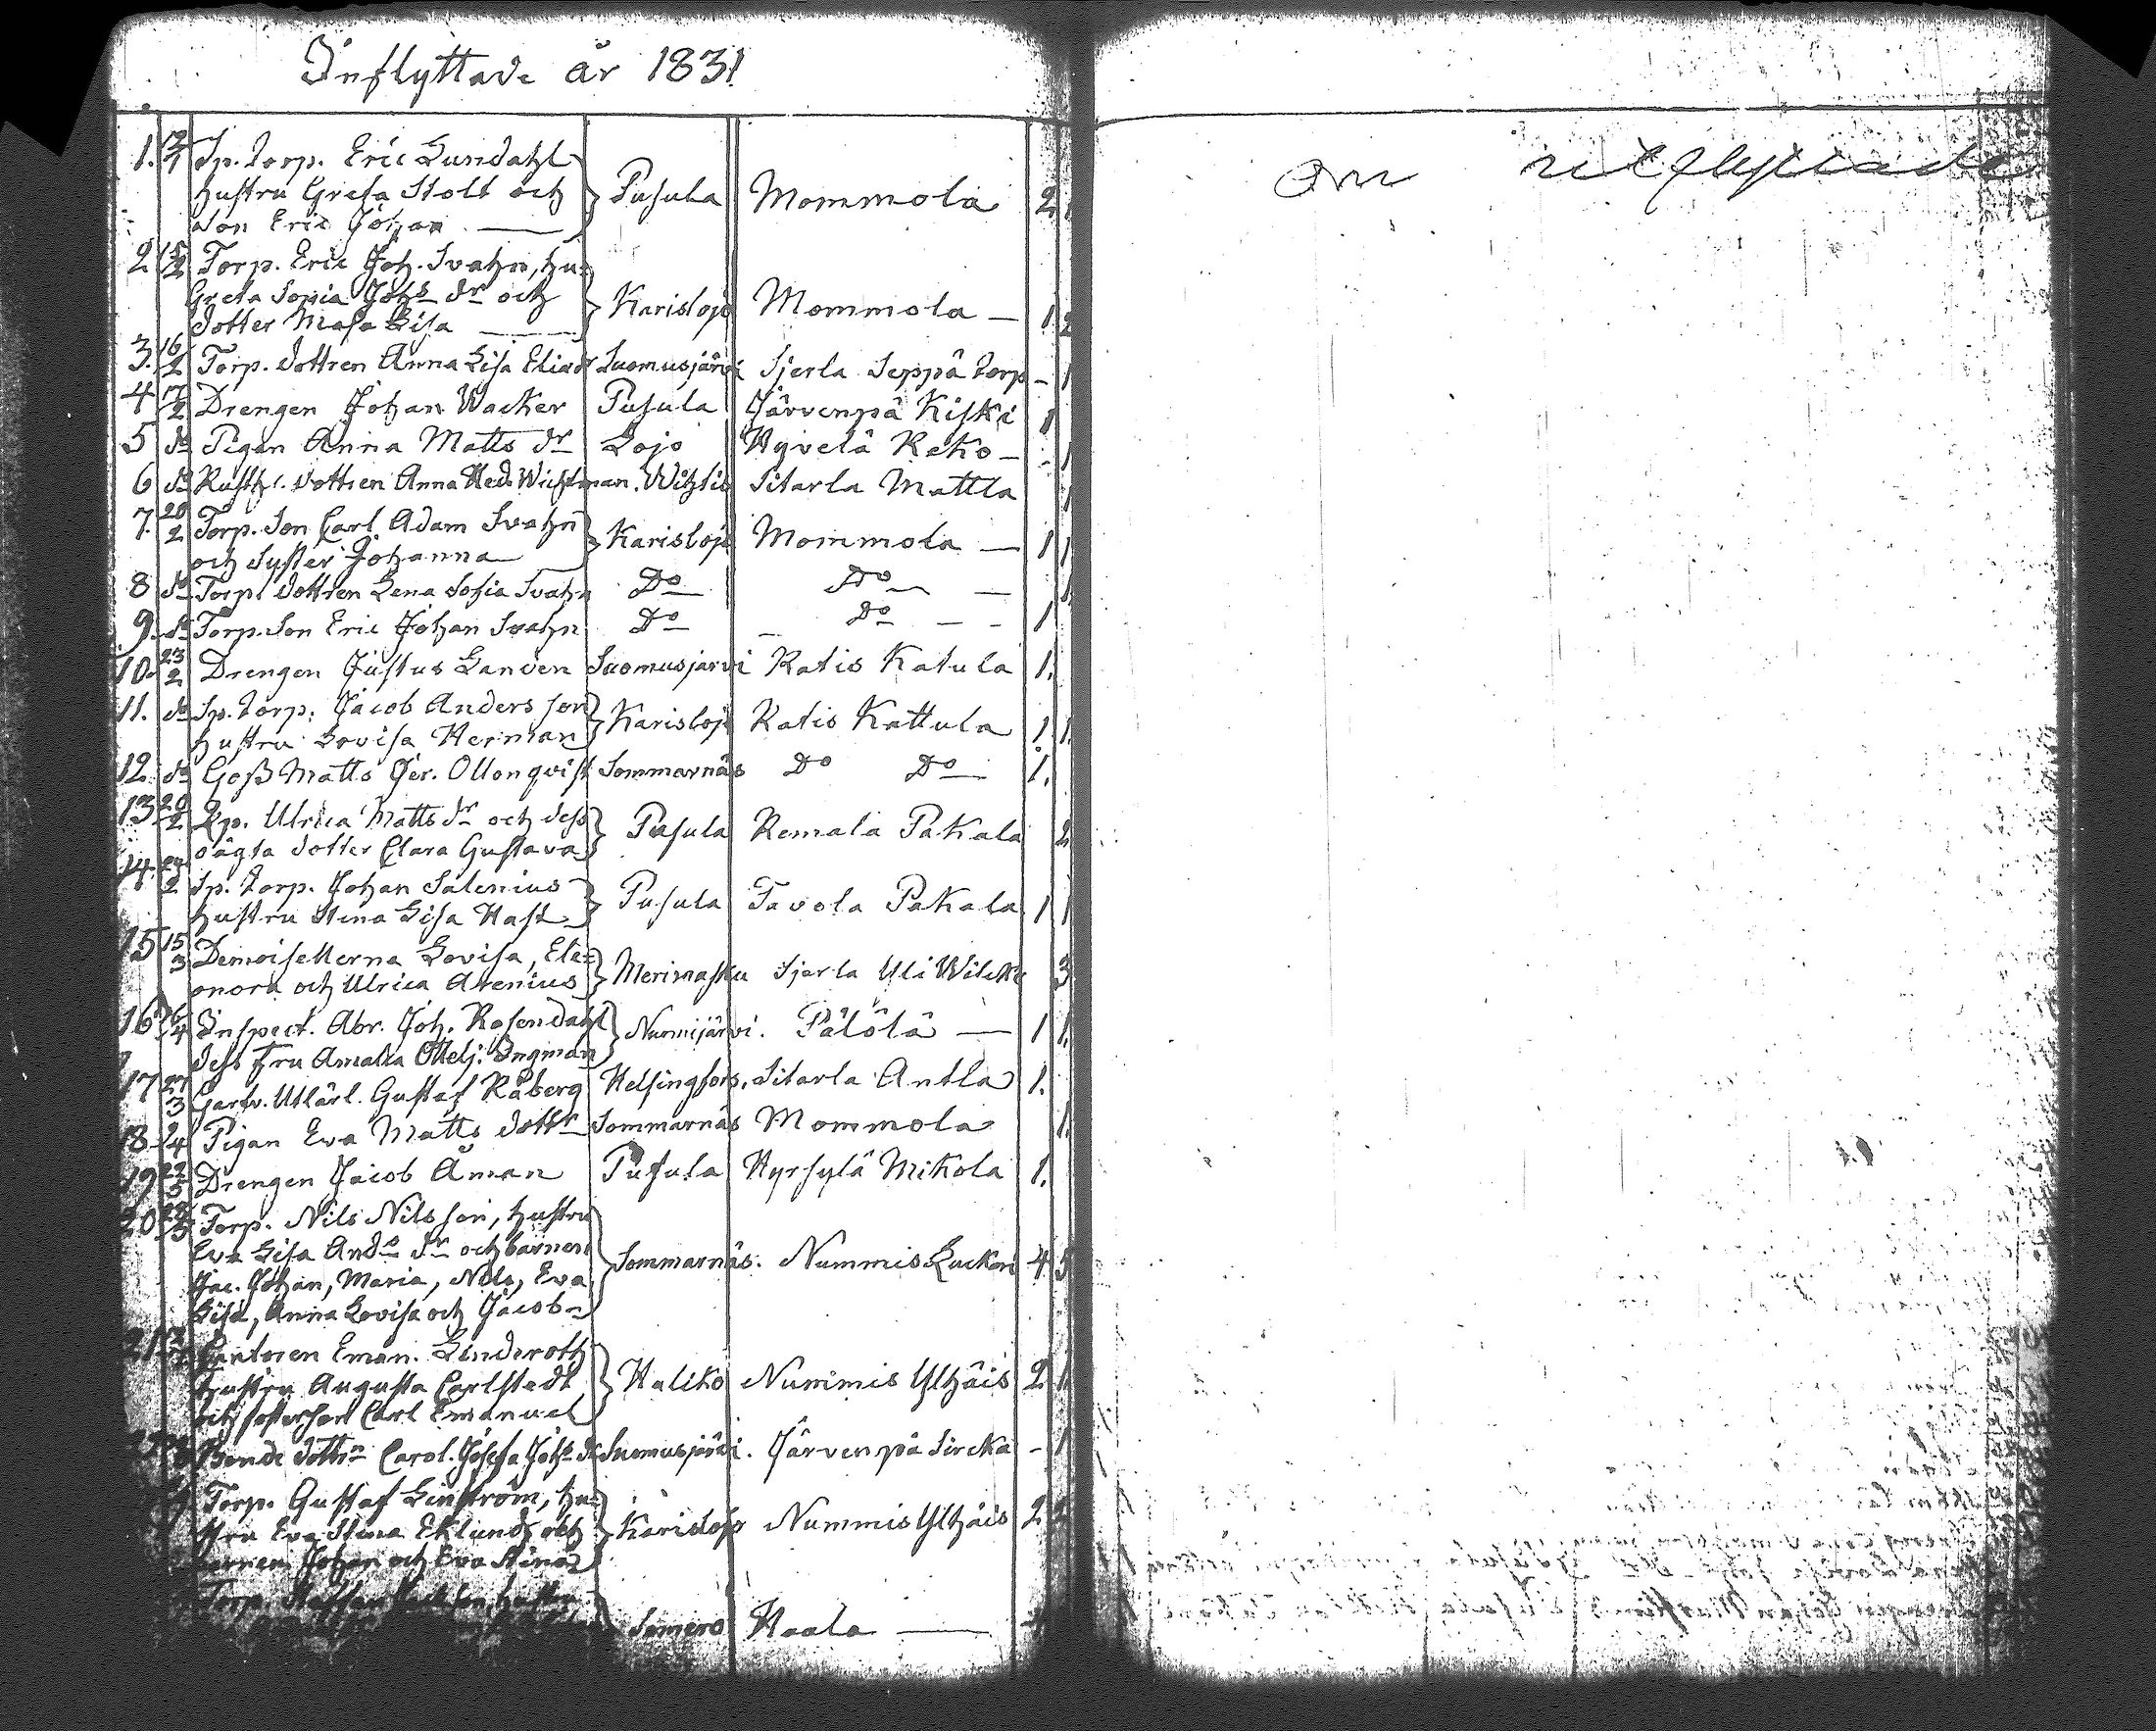 Inflyttade år 1831
1. 12/1 Sp. Torp. Eric Lundahl
hustru Gresa Stolt och } Pusula Mommola 2 1
Son Eric Johan
2 15/2 Torp. Eric Joh. Svahn, hu=
Greta Sofia Johs dr och } Karislojo Mommola — 1 2
dotter Maja Lisa
3. 16/2 Torp. dottren Anna Lisa Elias dr Suomusjärvi Sjerla Seppä Torp - 1
4 17/2 Drengen Johan Wacker Pusula Järvenpä Kiski 1
5 do Pigan Anna Matts dr Lojo Hyvelä Reko - - 1
6 do Rusth. dottren Anna Hed. Wichtman. Wihtis Sitarla Mattla 1
7. 20/2 Torp. Son Carl Adam Svahn } Karislojo Mommola — 1 1
och Syster Johanna
8 do Torp. dottren Lena Sofia Svahn Do Do — 1
9. do Torp. Son Eric Johan Svahn Do Do — 1
10. 23/2 Drengen Justus Landen Suomusjärvi Ratis Katula 1.
11. do Sp. Torp. Jacob Andersson } Karislojo Ratis Kattula 1. 1.
hustru Lovisa Herman
12. do Geß Matts Jer. Ollonqvist Sommarnäs Do Do 1.
13 20/2 Qp. Ulrica Matts dr och dess } Pusula Remala Pakala 2
oägta dotter Clara Gustava
14. 2 Sp. Torp. Johan Salenius } Pusula Tavola Pakala 1 1
hustru Stina Lisa Hast
15 15/3 Demoisellerna Lovisa, Ele= } Merimasku Sjerla Uli Wilcke 3
onora och Ulrica Avenius
16 16/4 Inspect. Abr. Joh. Rosendahl } Nurmijärvi. Pälölä — 1 1.
dess Fru Amalia Ottelj. Ingman
17 27/3 Garfv. Utlärl. Gustaf Råberg Helsingfors. Sitarla Antla 1.
18 2/4 Pigan Eva Matts dottr Sommarnäs Mommola 1.
19 22/5 Drengen Jacob Åman Pusula Hyrsylä Mikola 1.
20 28/5 Torp. Nils Nilsson, hustru
Eva Lisa Ands dr och barnen } Sommarnäs. Nummis Luckari 4 5
Jac. Johan, Maria, Nils, Eva
Lisa, Anna Lovisa och Jacob
21 Cantoren Eman. Linderoth
hustru Augusta Carlstedt } Haliko Nummis Ylhäis 2 1.
och fosterson Carl Emanuel
Bonde dottrn Carol. Josefa Johs dr Suomusjärvi. Järvenpä Sircka - 1
Torp. Gustaf Linström, hu=
stru Eva Stina Eklund och } Karislojo Nummis Ylhäis 2 2
barnen Johan och Eva Stina
Torp. Staffan
Somero Haala —
Om utflyttade